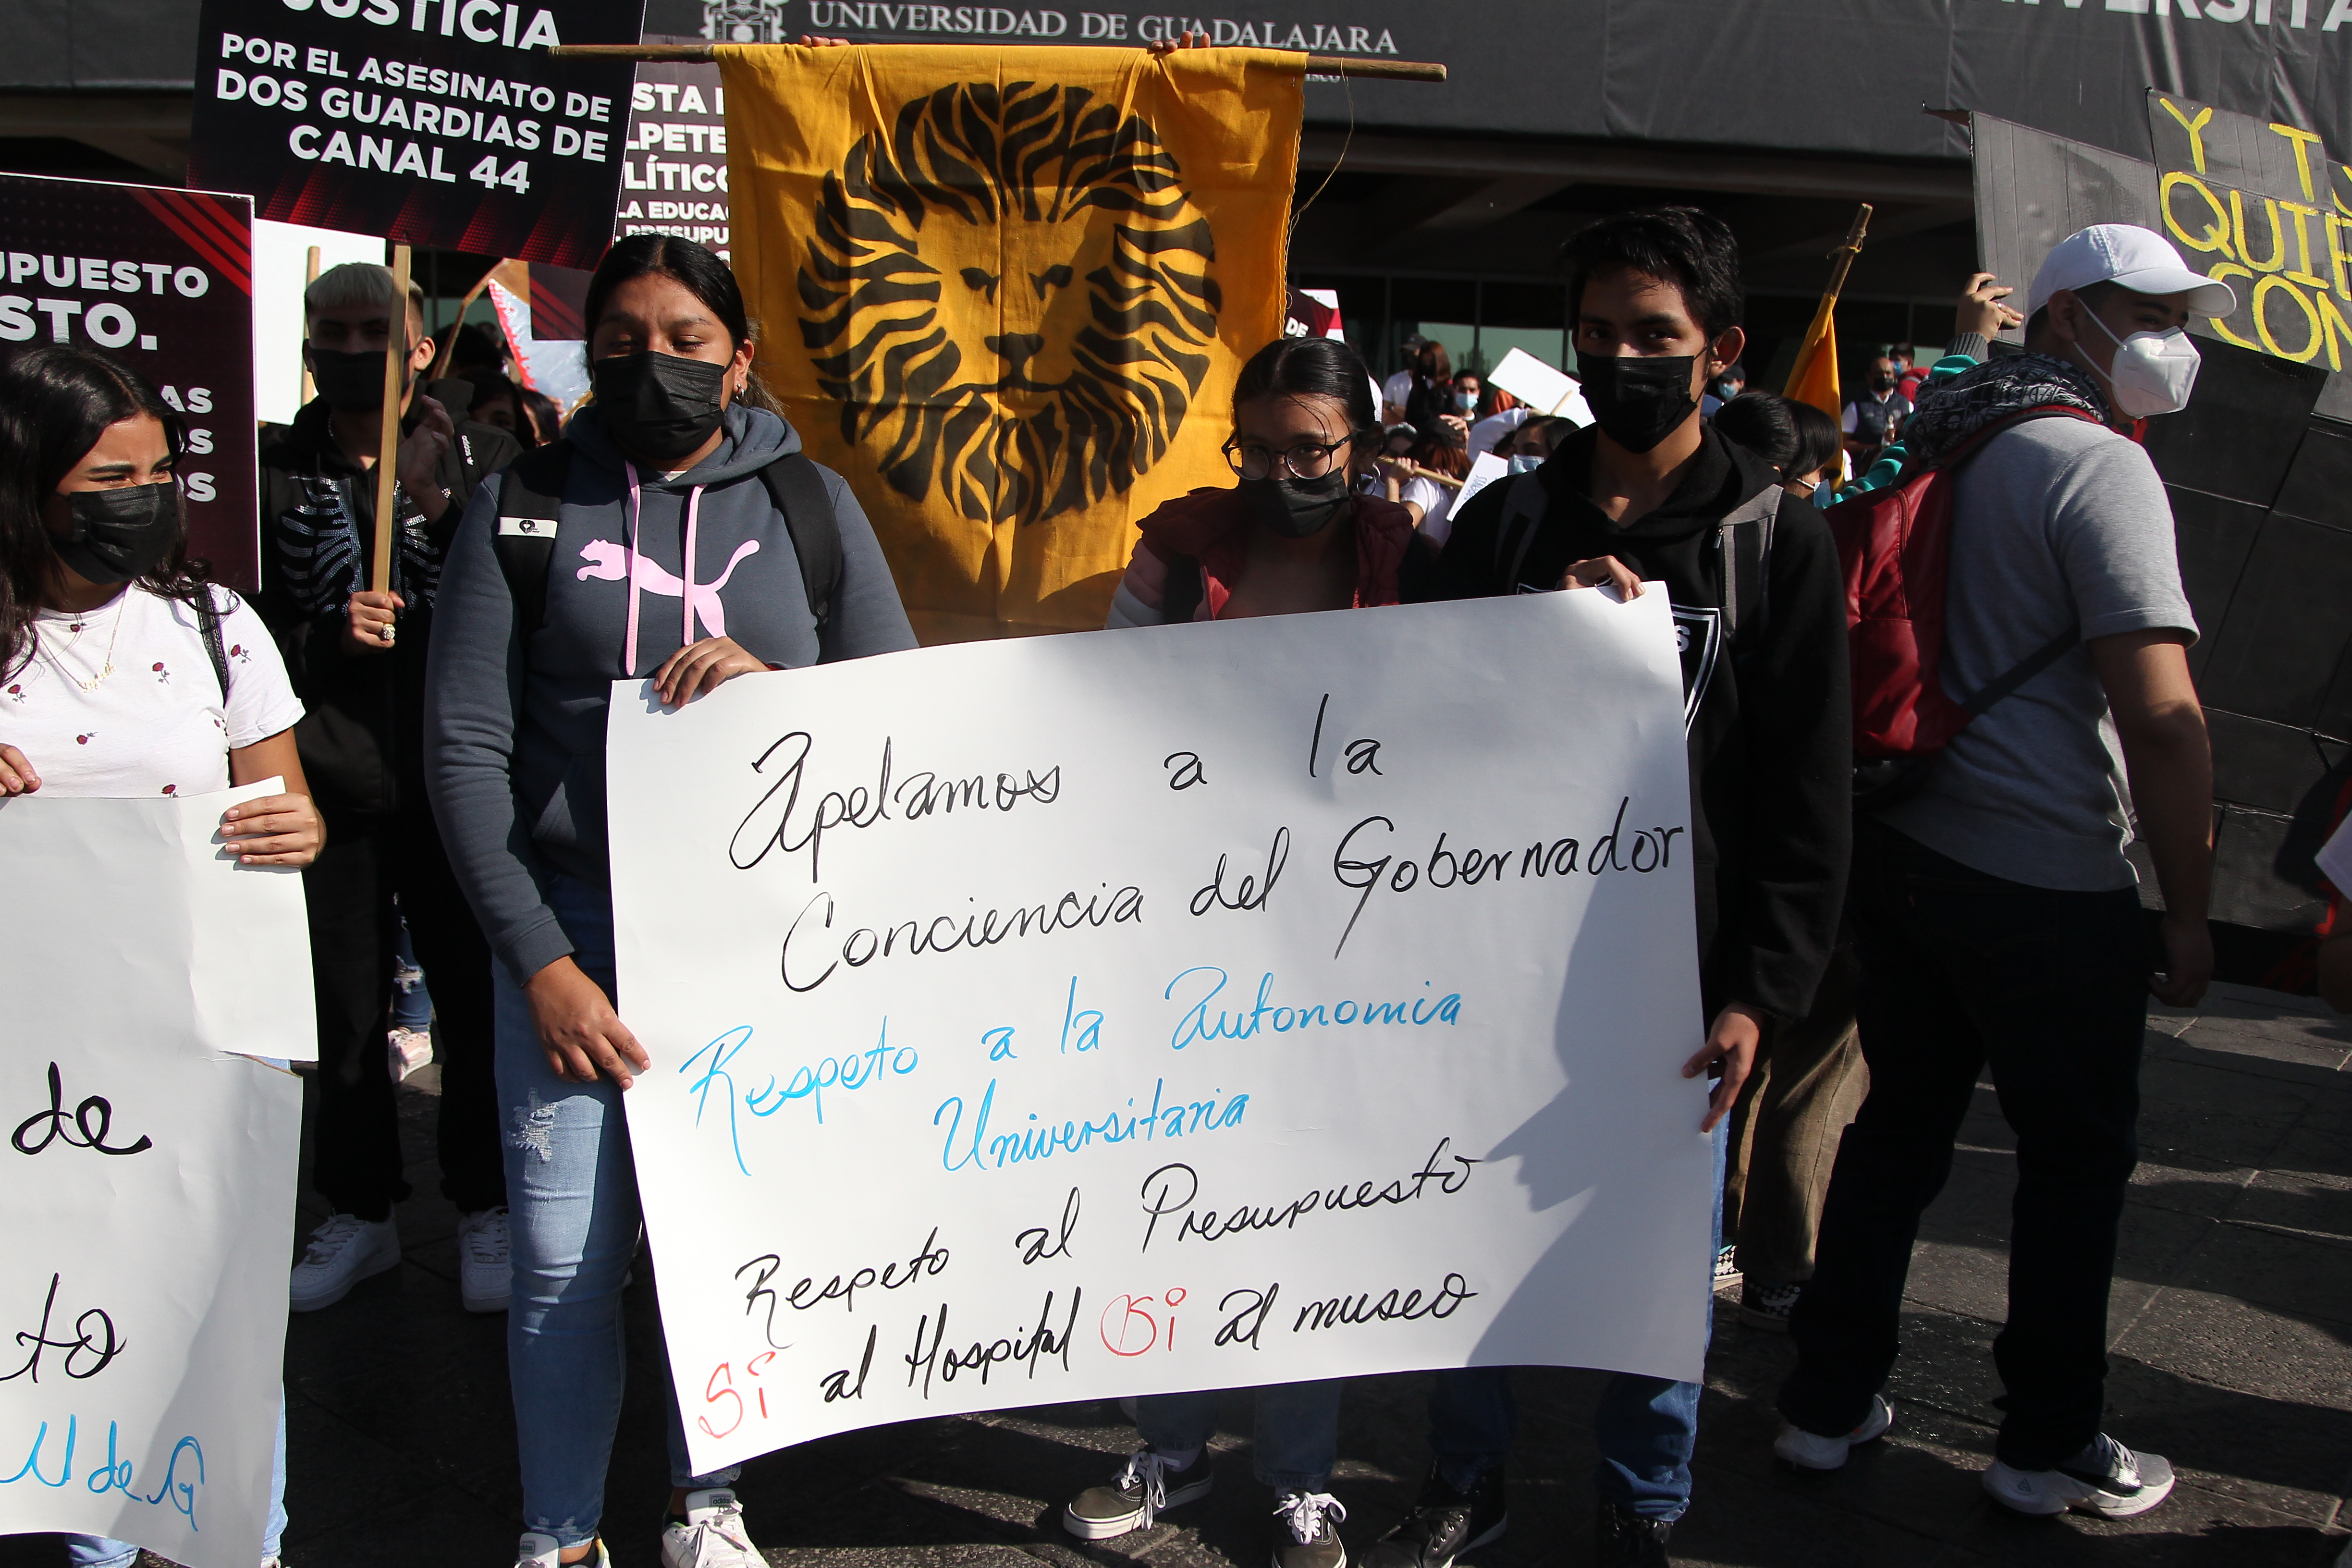 UNIVERSIDAD DE GUADALAJARA
JUSTICIA
POR EL ASESINATO DE
DOS GUARDIAS DE
CANAL 44
STA
LPETE
LÍTICO
LA EDUCA
PRESUPU
UPUESTO
STO.
AS
S
OS
DE
Y T
QUIE
CON
adidas
S
Apelamos a la
Conciencia del Gobernador
Respeto a la Autonomia
Universitaria
Respeto al Presupuesto
Si al Hospital Si al museo
de
to
U de G